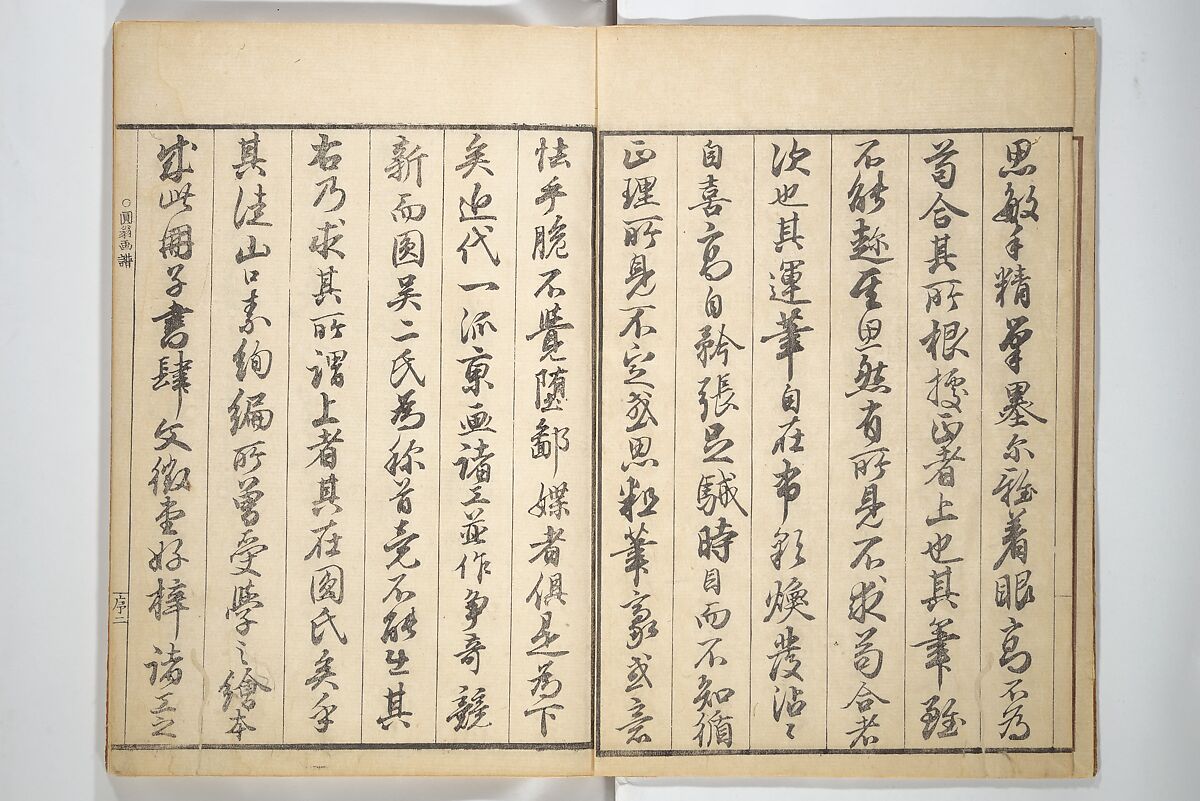 思敏手精筆墨尓雅着眼高不為
苟合其所根據正者上也其筆雖
不能趣至思然有所見不求苟合者
次也其運筆自在布彩煥發沾〻
自喜高自矜張足駴時目而不知循
正理所見不定或思粗筆豪或意
怯手脆不覺墮鄙媟者俱是為下
矣近代一派東画諸工並作争奇競
新而圓吴二氏為称首竟不能出其
右乃求其所謂上者其在圓氏矣乎
其徒山口素絢編所曽受學之繪本
成此冊子書肆文徴堂好梓諸工之
○圓翁画譜
序二